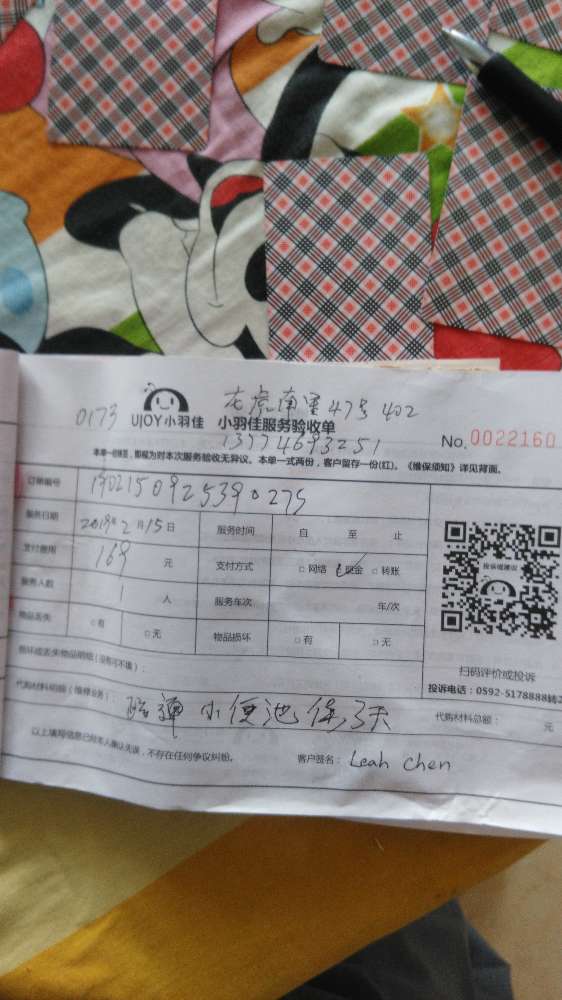 龙虎南里47号402
0173 UJOY小羽佳 小羽佳服务验收单
13774693251
No. 0022160
本单一经签签,即视为对本次服务验收无异议。本单一式两份,客户留存一份(红)。《维保须知》详见背面。
订单编号 1902150925390275
服务日期 2019年2月15日 服务时间 自 至 止
支付费用 169 元 支付方式 □网络 □现金 □转账
服务人数 1 人 服务车次 车/次
物品丢失 □有 □无 物品损坏 □有 □无
投诉或建议
扫码评价或投诉
投诉电话:0592-5178888转2
损坏或丢失物品明细(没有可不填):
代购材料明细(维修业务): 疏通小便池保3天 代购材料总额: 元
以上填写信息已经本人确认无误,不存在任何争议纠纷。 客户签名: Leah Chen